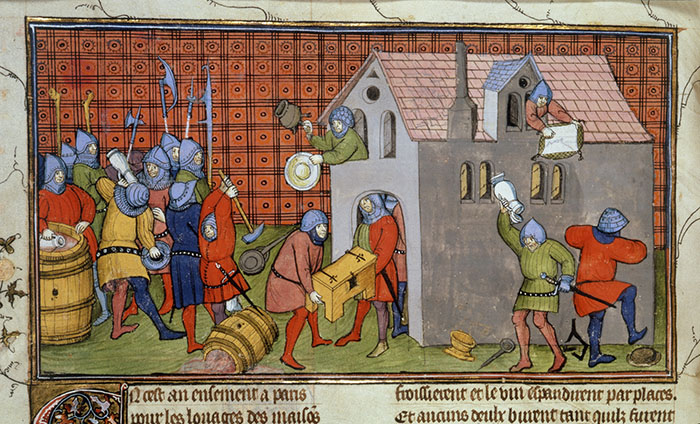 EN cest an ensement a paris
pour les louages des maisōs
froissierent et le vin espandirent par places.
Et aucuns deulx burent tant quilz furent